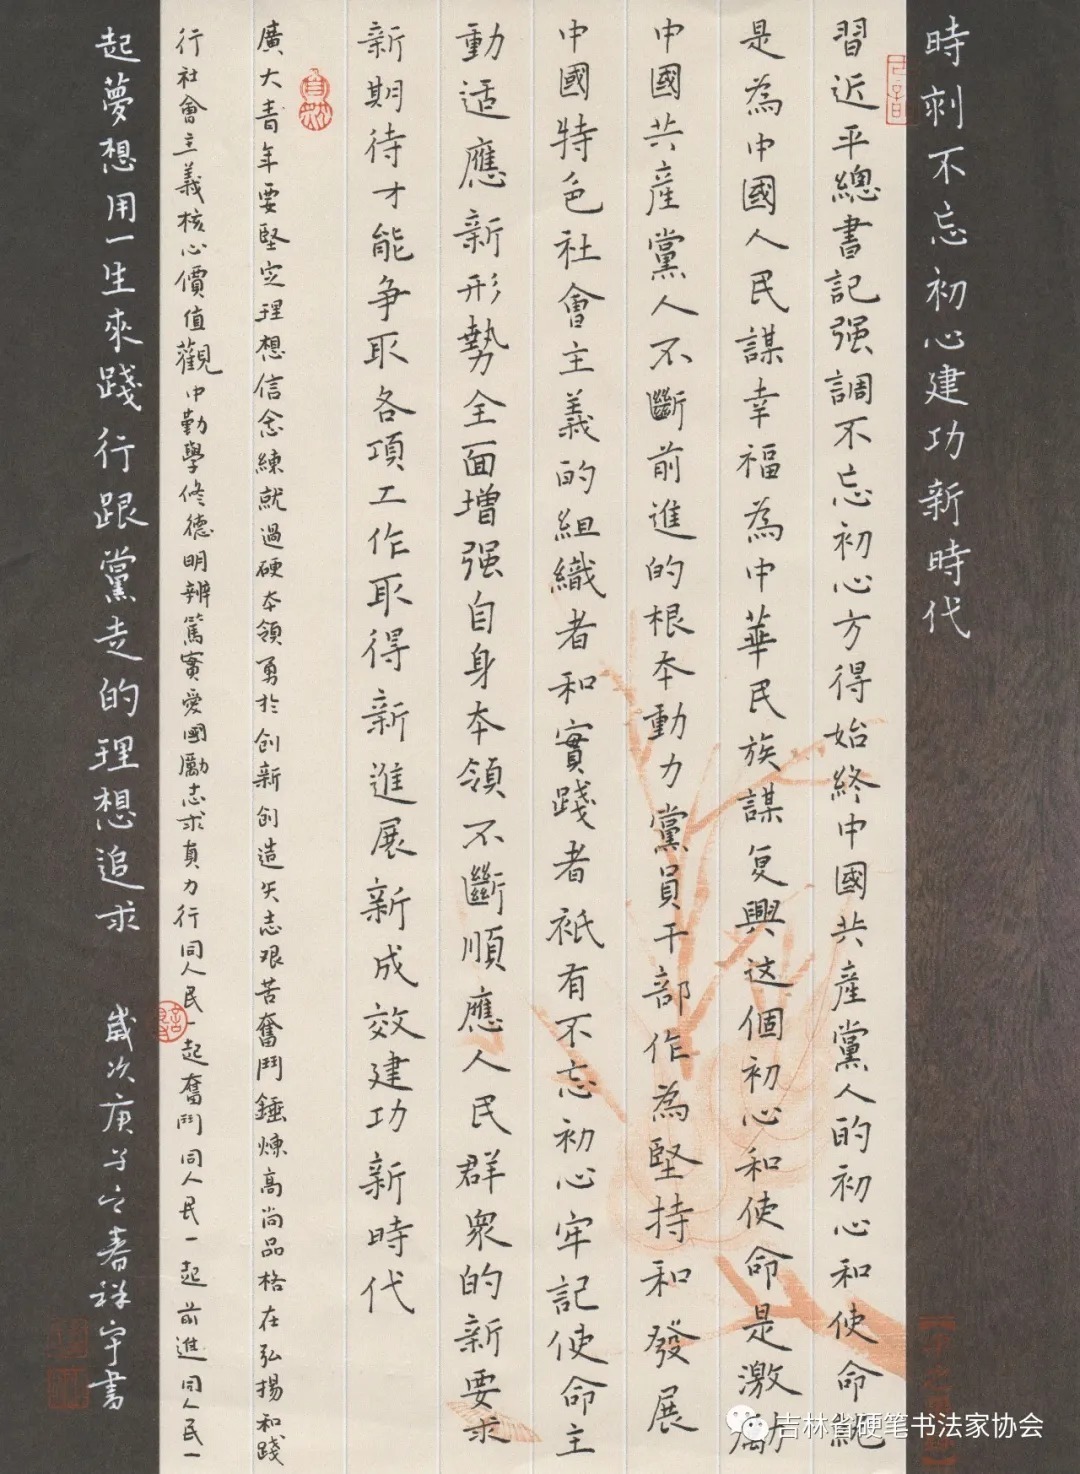 時刻不忘初心建功新時代
習近平總書記强調不忘初心方得始終中國共産黨人的初心和使命就
是為中國人民謀幸福為中華民族謀复興这個初心和使命是激勵
中國共産黨人不斷前進的根本動力黨員干部作為堅持和發展
中國特色社會主義的組織者和實踐者衹有不忘初心牢記使命主
動适應新形勢全面增强自身本領不斷順應人民群衆的新要求
新期待才能争取各項工作取得新進展新成效建功新時代
廣大青年要堅定理想信念練就過硬本領勇於创新创造矢志艰苦奮鬥錘煉高尚品格在弘揚和踐
行社會主義核心價值觀中勤學修德明辨篤實爱國勵志求真力行同人民一起奮鬥同人民一起前進同人民一
起夢想用一生來踐行跟黨走的理想追求
歲次庚子之春祥宇書
吉林省硬笔书法家协会